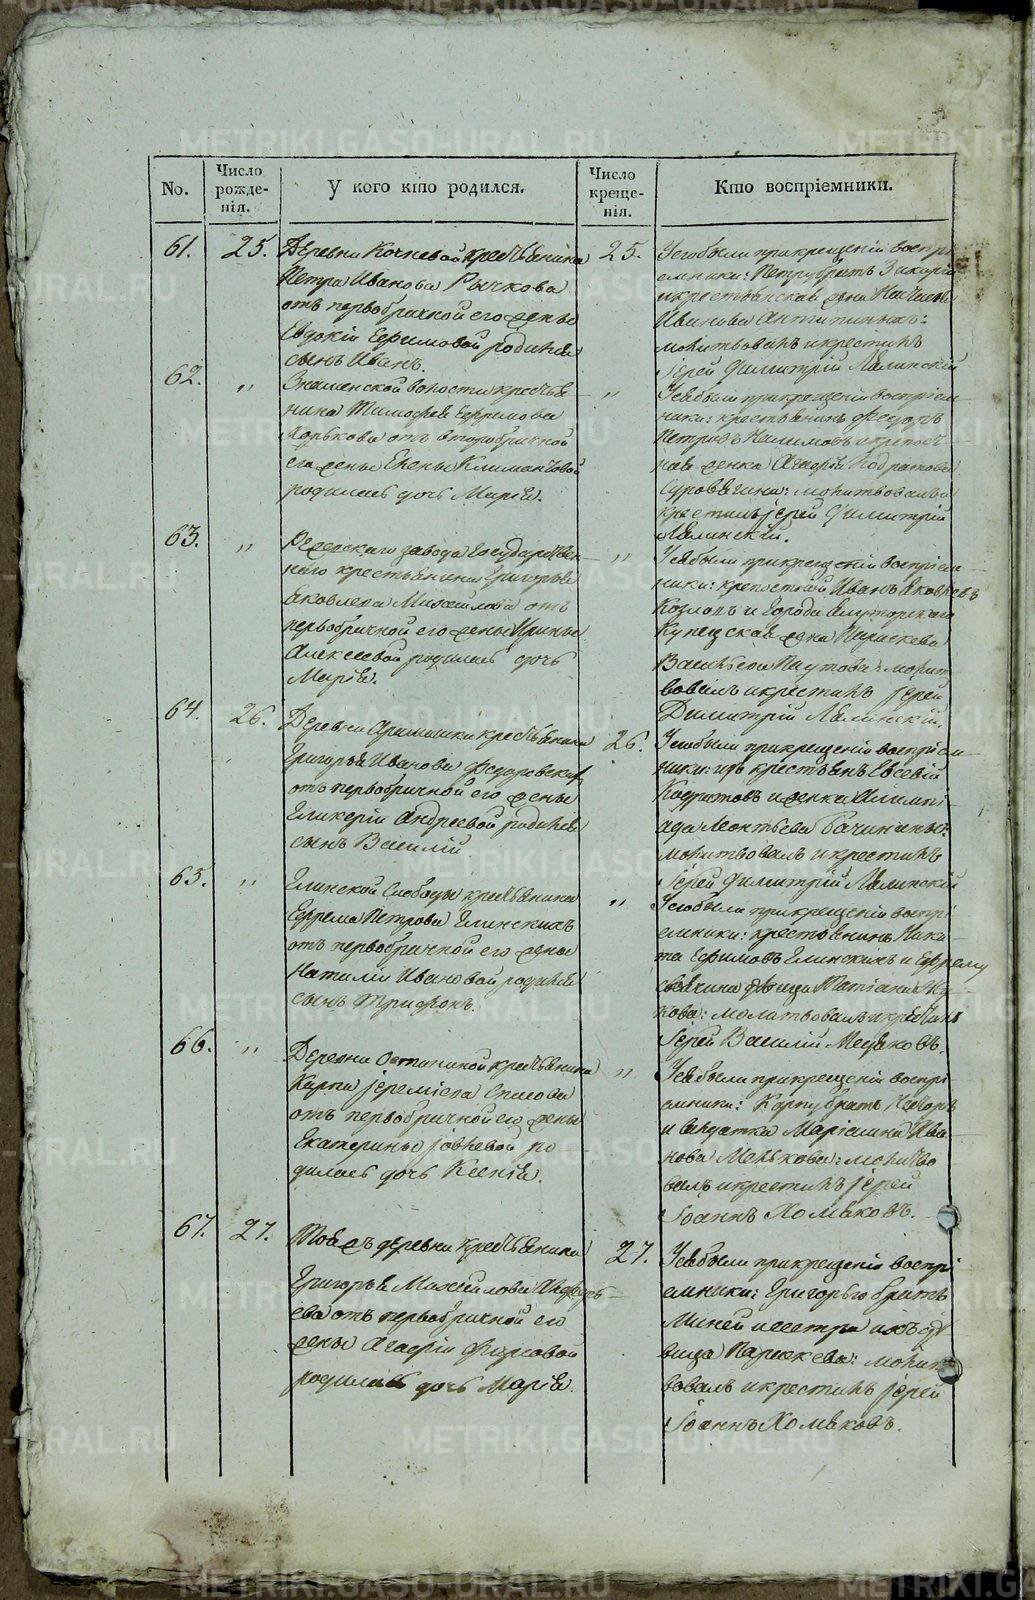 METRIKI.GASO-URAL.RU
No.
Число рожде-
нія.
У кого кто родился.
Число креще-
нія.
Кто воспріемники.
61.
25.
Деревни Кочневой крестьянина
Петра Иванова Рычкова
отъ первобрачной его жены
Евдокіи Ефимовой родился
сынъ Иванъ.
25.
У сего были при крещеніи воспрі
емники: Петру братъ Захарій
и крестьянская жена
Иванова
молитвовалъ и крестилъ
Іерей Димитрій Лялинскій
62.
"
Знаменской волости крестья
нина Тимофея Ефремова
Хорькова отъ второбрачной
его жены Елены
родилась дочь Марія.
"
У сея были при крещеніи воспріем
ники: крестьянинъ Федоръ
Петровъ
жена Агафія
молитвовалъ и
крестилъ іерей Димитрій
Лялинскій.
63.
"
Режевскаго завода Государствен
наго крестьянина Григорья
Яковлева Михайлова отъ
первобрачной его жены Ирины
Алексеевой родилась дочь
Марія.
"
У сея были при крещеніи воспріем
ники: крепостной Иванъ Яковлевъ
Козловъ и города
Купецкая жена Параскева
Васильева Паутова: молит
вовалъ и крестилъ іерей
Димитрій Лялинскій.
64.
26.
Деревни крестьянина
Григорья Иванова Федоровскаго
отъ первобрачной его жены
Гликеріи Андреевой родился
сынъ Василій
26.
У сего были при крещеніи воспріем
ники: крестьянъ Евсевій
и женка Алимпі
ада Леонтьева
молитвовалъ и крестилъ
Іерей Димитрій Лялинскій
65.
"
Глинской Слободы крестьянина
Ефрема Петрова Глинскихъ
отъ первобрачной его жены
Наталіи Ивановой родился
сынъ Трифонъ.
"
У сего были при крещеніи воспрі
емники: крестьянинъ Ники
та Ефимовъ Глинскихъ и Ефрему
свякина девица Татіана
молитвовалъ и крестилъ
Іерей Василій
66.
"
Деревни Останиной крестьянина
Карпа Іереміева
отъ первобрачной его жены
Екатерины Іовлевой ро
дилась дочь Ксенія.
"
У сея были при крещеніи воспрі
емники: Карпу братъ
и Солдатка Маріамна Ива
нова молитво
валъ и крестилъ іерей
Іоаннъ Хомяковъ.
67.
27.
Той жъ деревни крестьянина
Григорья Михайлова
отъ первобрачной его
жены Агафіи Фирсовой
родилась дочь Марія.
27.
У сея были при крещеніи воспрі
емники: Григорью братъ
Миней и сестра ихъ де
вица Параскева: молит
вовалъ и крестилъ іерей
Іоаннъ Хомяковъ.